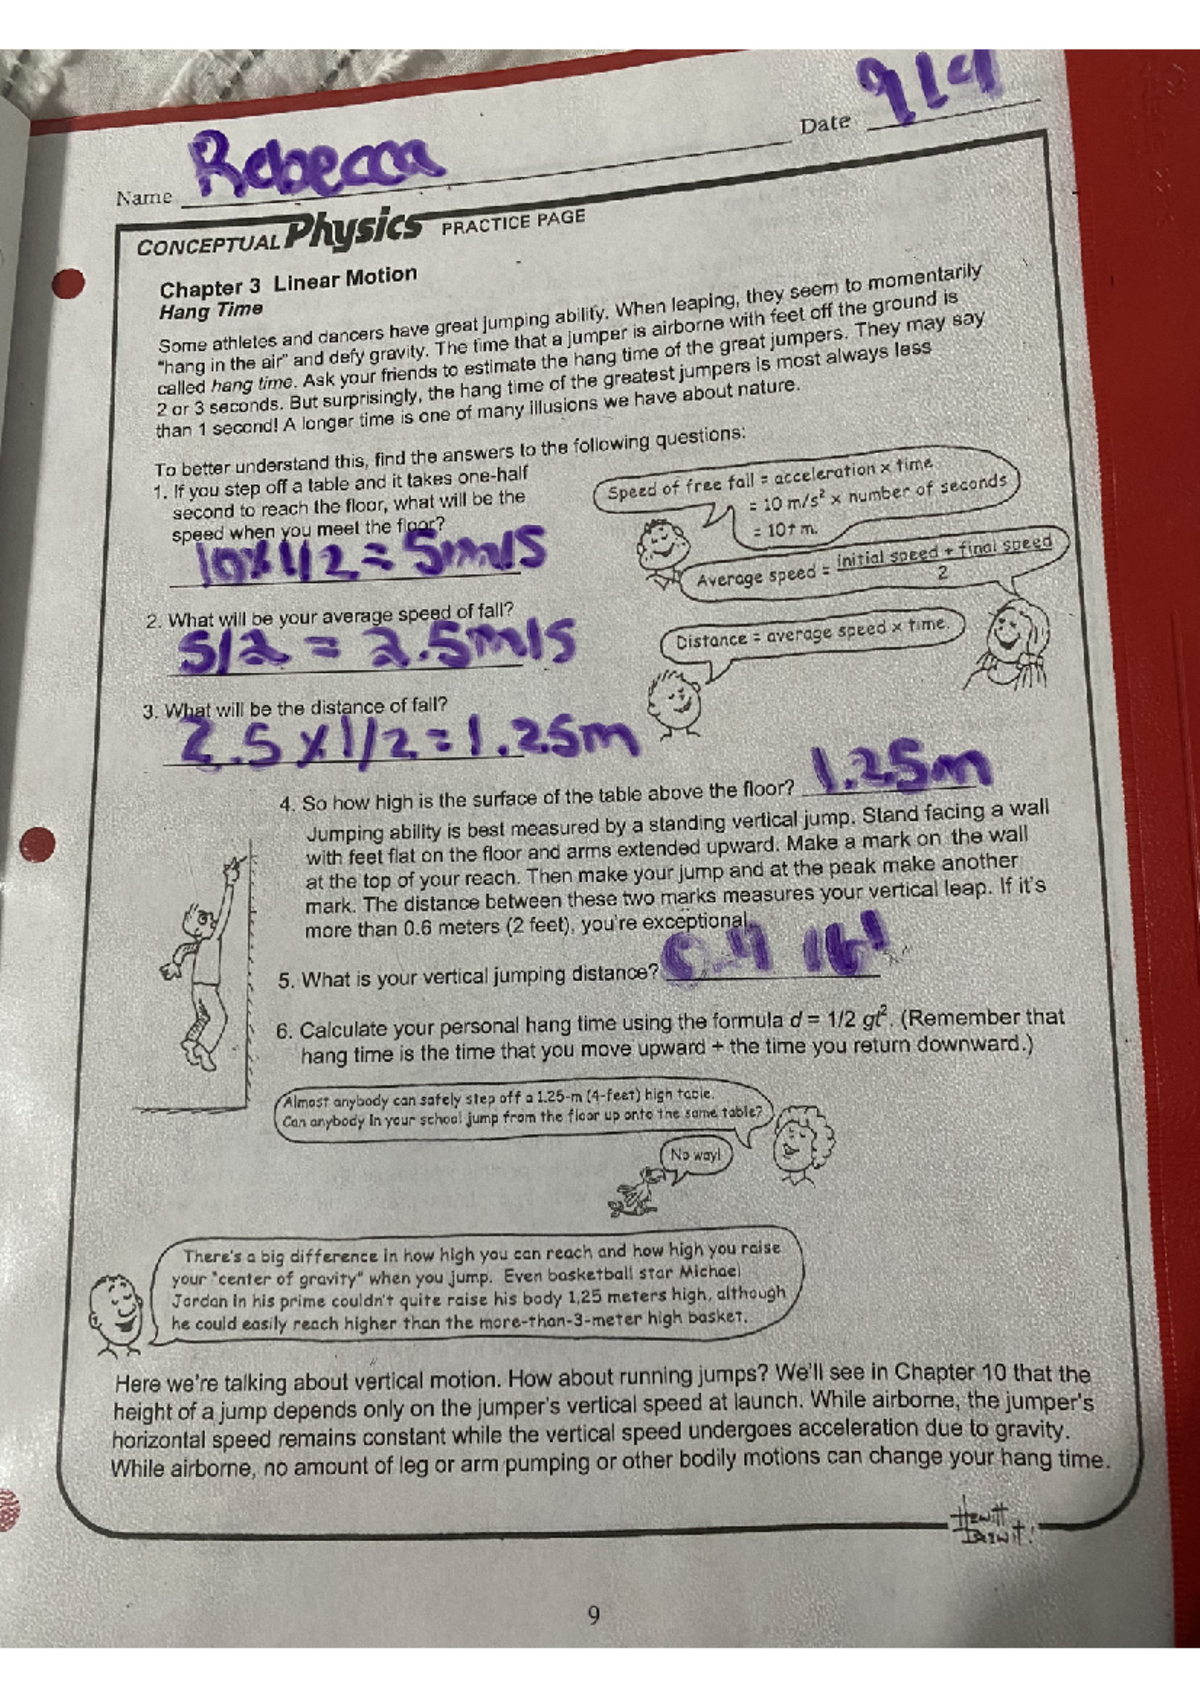 Name Rebecca Date 914
CONCEPTUAL Physics PRACTICE PAGE
Chapter 3 Linear Motion
Hang Time
Some athletes and dancers have great jumping ability. When leaping, they seem to momentarily
"hang in the air" and defy gravity. The time that a jumper is airborne with feet off the ground is
called hang time. Ask your friends to estimate the hang time of the great jumpers. They may say
2 or 3 seconds. But surprisingly, the hang time of the greatest jumpers is most always less
than 1 second! A longer time is one of many illusions we have about nature.
To better understand this, find the answers to the following questions:
1. If you step off a table and it takes one-half
second to reach the floor, what will be the
speed when you meet the floor?
10x1/2 = 5m/s
Speed of free fall = acceleration x time
= 10 m/s² x number of seconds
= 10t m.
Average speed = initial speed + final speed
2
2. What will be your average speed of fall?
5/2 = 2.5m/s
Distance = average speed x time.
3. What will be the distance of fall?
2.5 x 1/2 = 1.25m
4. So how high is the surface of the table above the floor? 1.25m
Jumping ability is best measured by a standing vertical jump. Stand facing a wall
with feet flat on the floor and arms extended upward. Make a mark on the wall
at the top of your reach. Then make your jump and at the peak make another
mark. The distance between these two marks measures your vertical leap. If it's
more than 0.6 meters (2 feet), you're exceptional.
5. What is your vertical jumping distance?
6. Calculate your personal hang time using the formula d = 1/2 gt². (Remember that
hang time is the time that you move upward + the time you return downward.)
Almost anybody can safely step off a 1.25-m (4-feet) high table.
Can anybody in your school jump from the floor up onto the same table?
No way!
There's a big difference in how high you can reach and how high you raise
your "center of gravity" when you jump. Even basketball star Michael
Jordan in his prime couldn't quite raise his body 1,25 meters high, although
he could easily reach higher than the more-than-3-meter high basket.
Here we're talking about vertical motion. How about running jumps? We'll see in Chapter 10 that the
height of a jump depends only on the jumper's vertical speed at launch. While airborne, the jumper's
horizontal speed remains constant while the vertical speed undergoes acceleration due to gravity.
While airborne, no amount of leg or arm pumping or other bodily motions can change your hang time.
Hewitt
Drew it!
9